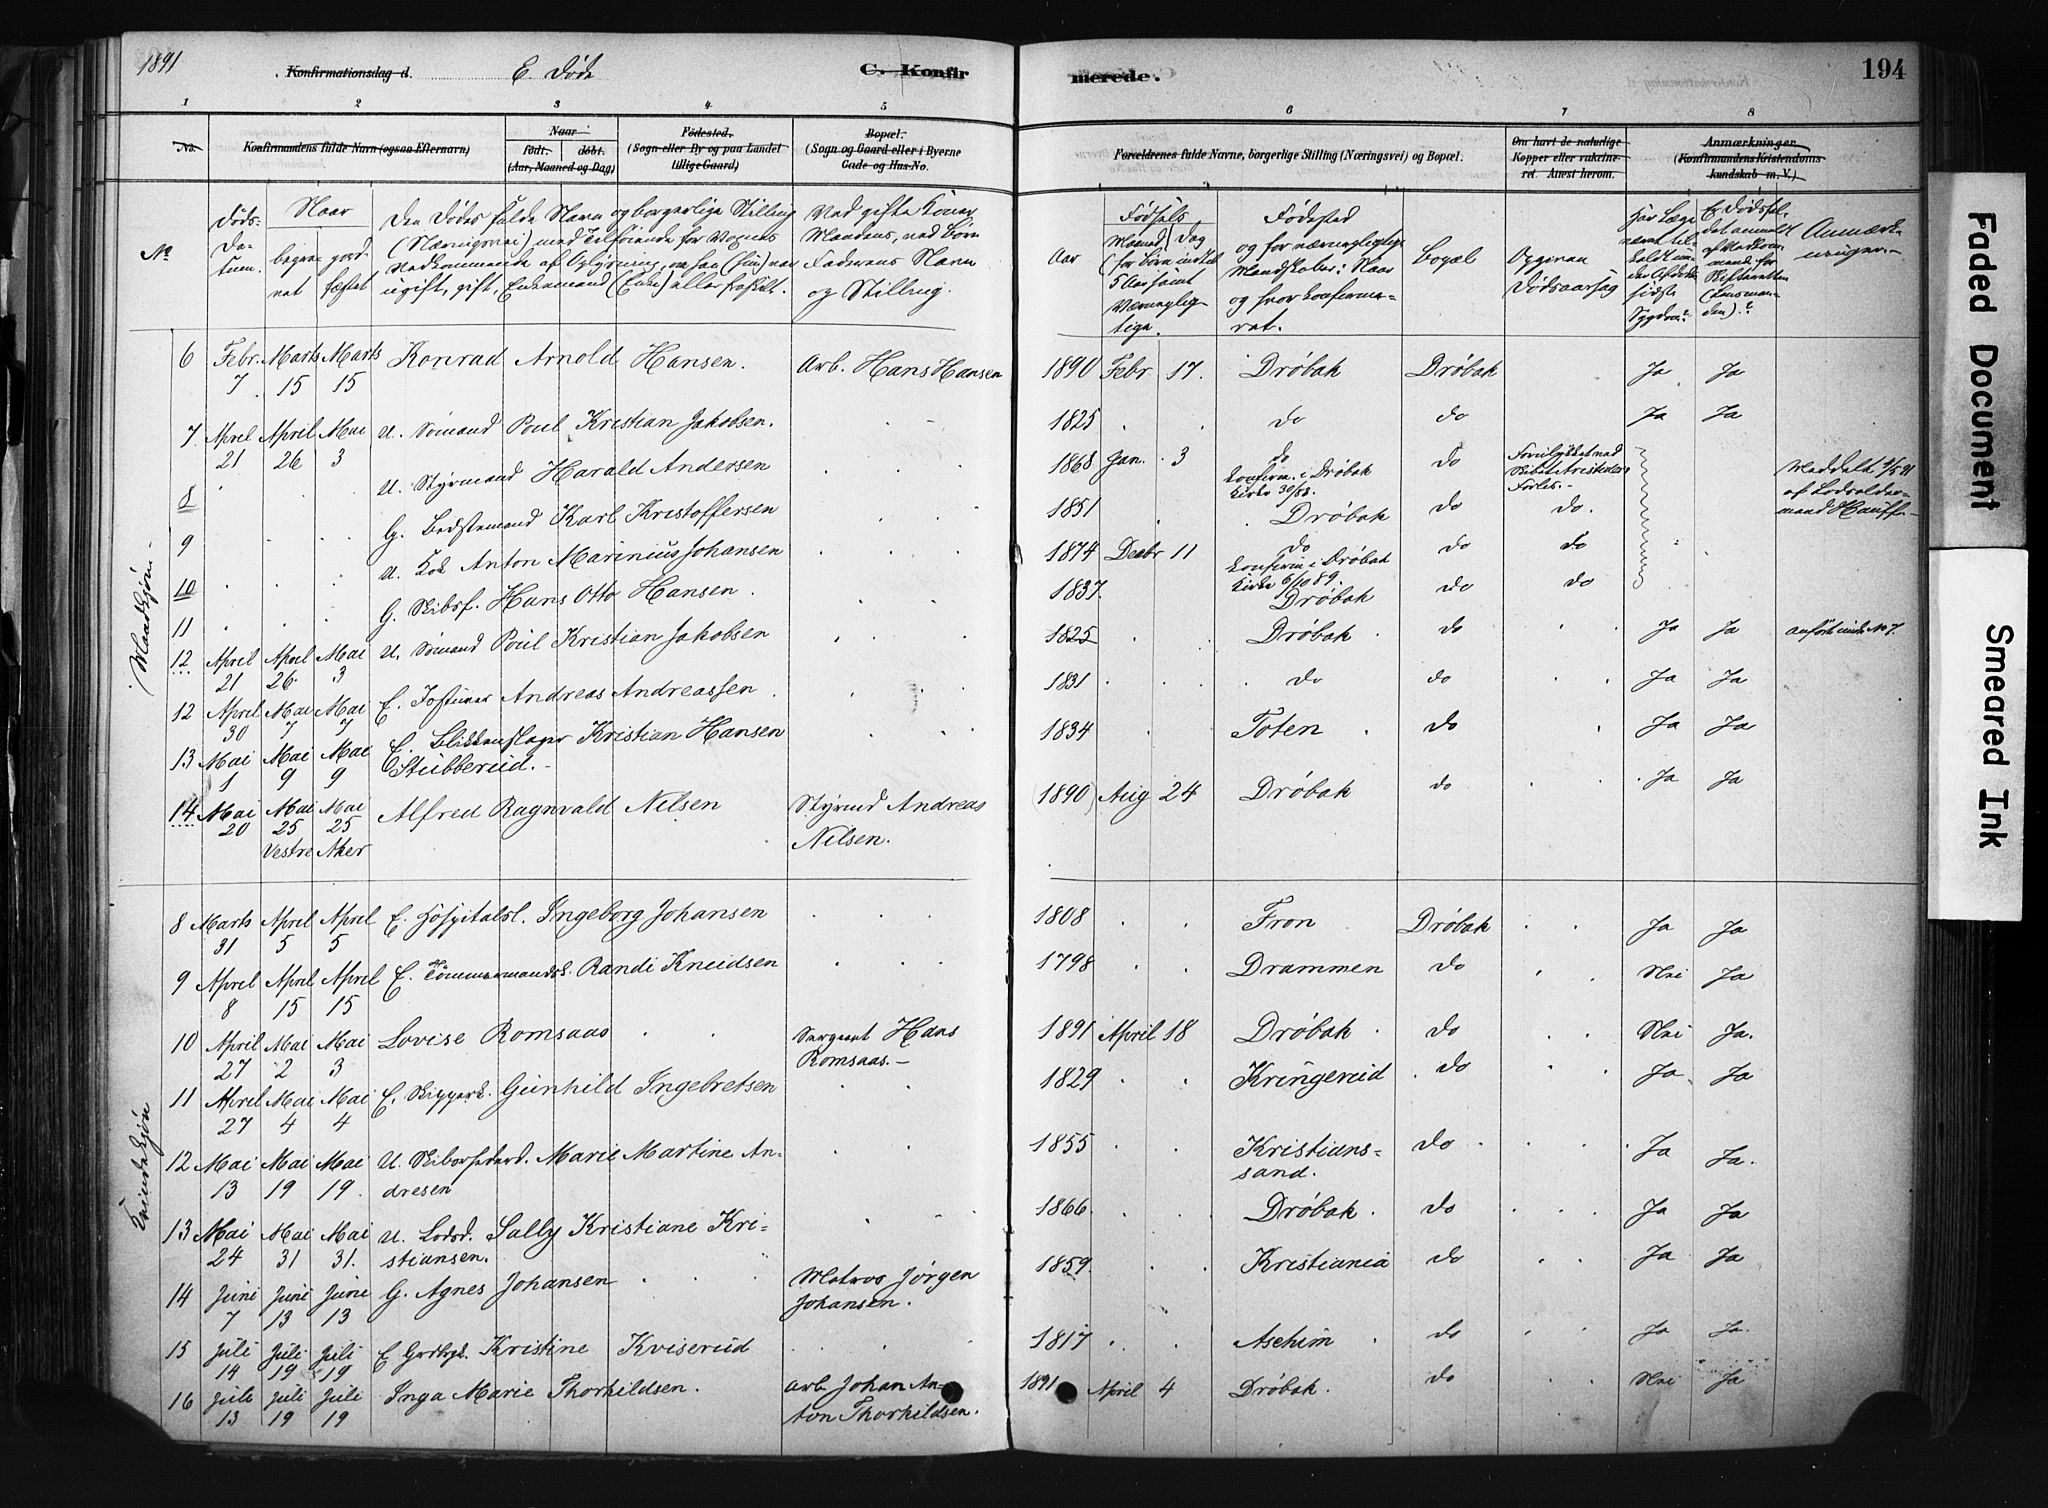 1891 Konfirmationsdag d. E. Døde C. Konfir merede. 194
1 2 3 4 5 6 7 8
No. Konfirmandens fulde Navn (ogsaa Efternavn) Naar født. døbt. (Aar, Maaned og Dag) Fødested. (Sogn eller By og paa Landet tillige Gaard) Bopæl. (Sogn og Gaard eller i Byerne Gade og Hus-No. Forældrenes fulde Navne, borgerlige Stilling (Næringsvei) og Bopæl. Om havt de naturlige Kopper eller vakcineret. Attest herom. Anmærkninger (Konfirmandens Kristendomskundskab m. V.)
No Døds-Datum. Naar begravet jordfæstet Den Dødes fulde Navn og borgerlige Stilling (Næringsvei) med Tilføiende for Voxnes Vedkommende af Oplysning, om han (hun) var ugift, gift, Enkemand (Enke) eller fraskilt. Ved gifte Koner Mandens, ved Børn Faderens Navn og Stilling. Aar Fødsels Maaned Dag (for Børn indtil 5 Aar samt Værnepligtige. Fødested og for værnepligtige Mandskaber: Naar og hvor konfirmeret. Bopæl Opgiven Dødsaarsag Har Læge været tilkaldt under Afdødes sidste Sygdom? Er Dødsfaldet anmeldt af Vedkommende for Skifteretten (Lensmanden)? Anmærkninger.
Mandkjøn
6 Febr. 7 Marts 15 Marts 15 Konrad Arnold Hansen. Arb. Hans Hansen 1890 Febr 17. Drøbak Drøbak Ja Ja
7. April 21 April 26 Mai 3 U. Sømand Poul Kristian Jakobsen. 1825 do do Ja Ja
8 U. Styrmand Harald Andersen 1868 Jan. 3 do konfirm. i Drøbak Kirke 30/ 83. do Forulykket med Skibet Aristides Forlis. Meddelt 4/5 91 af Lodsoldermand Hauff
9 G. Bedstemand Karl Kristoffersen 1851 Drøbak do do.
10 U. Kok Anton Marinius Johansen 1874 Decbr 11 do konfirm i Drøbak Kirke 6/10 89. do do
11 G. Skibsf. Hans Otto Hansen. 1837. Drøbak do do
12 April 21 April 26 Mai 3 U. Sømand Poul Kristian Jakobsen 1825 Drøbak do Ja Ja anført under No 7.
12 April 30 Mai 7 Mai 7 E. Andreas Andreassen 1831 do do Ja Ja
13 Mai 1 Mai 9 Mai 9 E. Blikkenslager Kristian Hansen Stubberud. 1834 Toten do Ja Ja
14 Mai 20 Mai 25 Mai 25 Vestre Aker Alfred Ragnvald Nilsen Styrmd Andreas Nilsen. 1890 Aug 24 Drøbak do Ja Ja
Kvindekjøn
8 Marts 31 April 5 April 5 E. Hospitalsl. Ingeborg Johansen 1808 Fron Drøbak Ja Ja
9 April 8 April 15 April 15 E. Tømmermandsk. Randi Knudsen 1798 Drammen do Nei Ja
10 April 27 Mai 2 Mai 3 Lovise Romsaas Sergeant Hans Romsaas. 1891 April 18 Drøbak do Nei Ja.
11 April 27 Mai 4 Mai 4 E. Skipperk. Gunhild Ingebretsen 1829 Kringerud do Ja Ja
12 Mai 13 Mai 19 Mai 19. U. Marie Martine Andresen 1855 Kristianssand. do Ja Ja.
13 Mai 24 Mai 31 Mai 31. U. Lodsd. Sally Kristiane Kristiansen. 1866 Drøbak. do Ja Ja
14 Juni 7 Juni 13 Juni 13 G. Agnes Johansen Matros Jørgen Johansen. 1859 Kristiania do Ja Ja
15 Juli 14 Juli 19 Juli 19 E Kristine Kviserud 1817 Aschim do Ja Ja
16 Juli 13 Juli 19 Juli 19 Inga Marie Thorkildsen. Arb. Johan Anton Thorkildsen. 1891 April 4 Drøbak. do Nei Ja
Faded Document
Smeared Ink